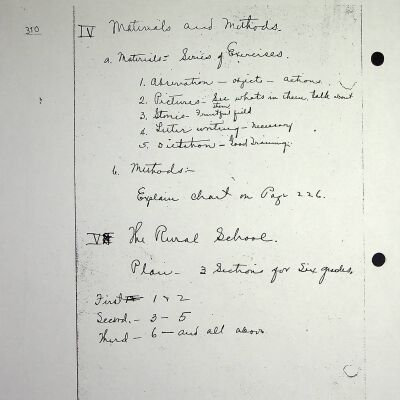 310
IV Materials and Methods.
a. Materials = Series of Exercises.
1. Observation - objects - actions.
2. Pictures - See whats in them, talk about
them
3. Stories - Fruitful field
4. Letter writing - Necessary
5. Dictation - Good Training.
b. Methods: -
Explain Chart on Page 226.
V The Rural School.
Plan - 3 Sections for Six grades
First 1 & 2
Second - 3 - 5
Third - 6 - and all above